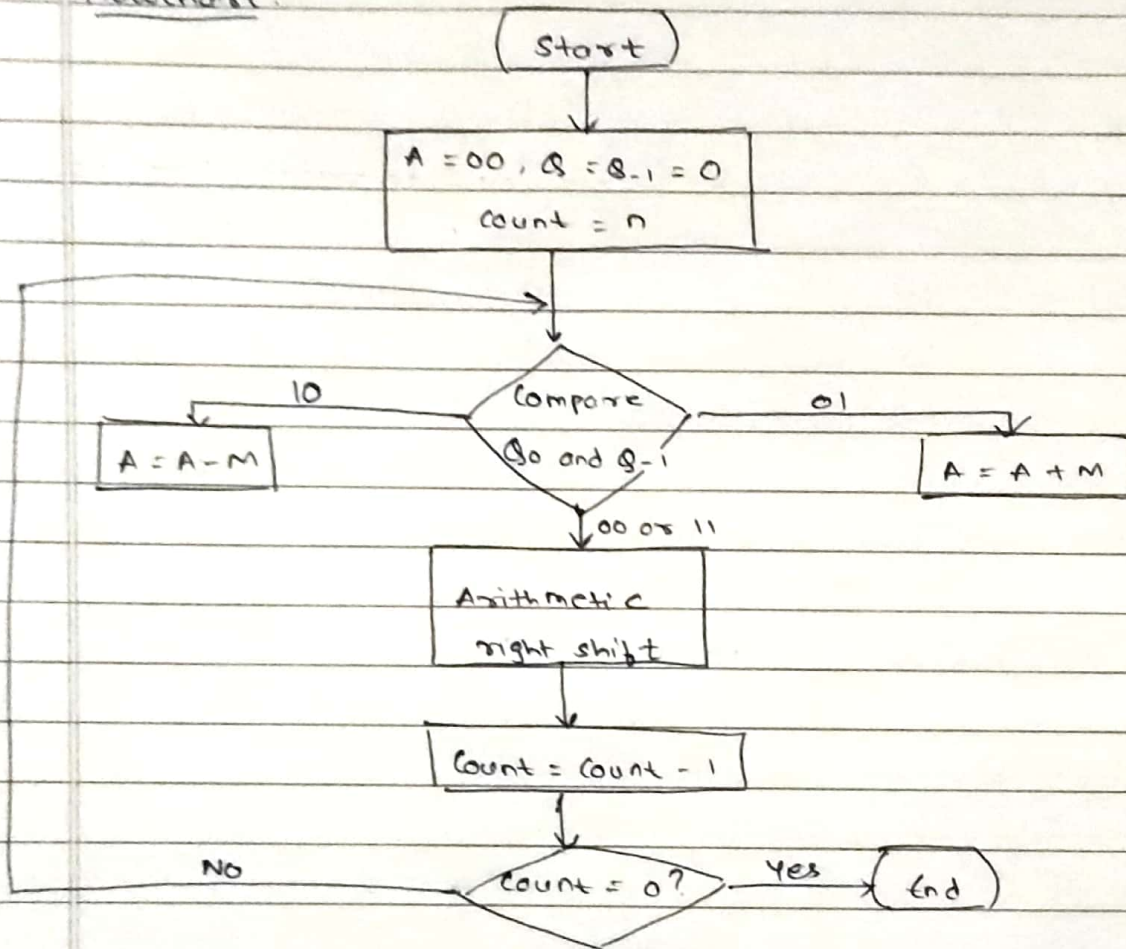 Start
A = 00, Q = Q-1 = 0
count = n
10
Compare
Q0 and Q-1
01
A = A - M
A = A + M
00 or 11
Arithmetic
right shift
Count = Count - 1
NO
Count = 0?
Yes
End